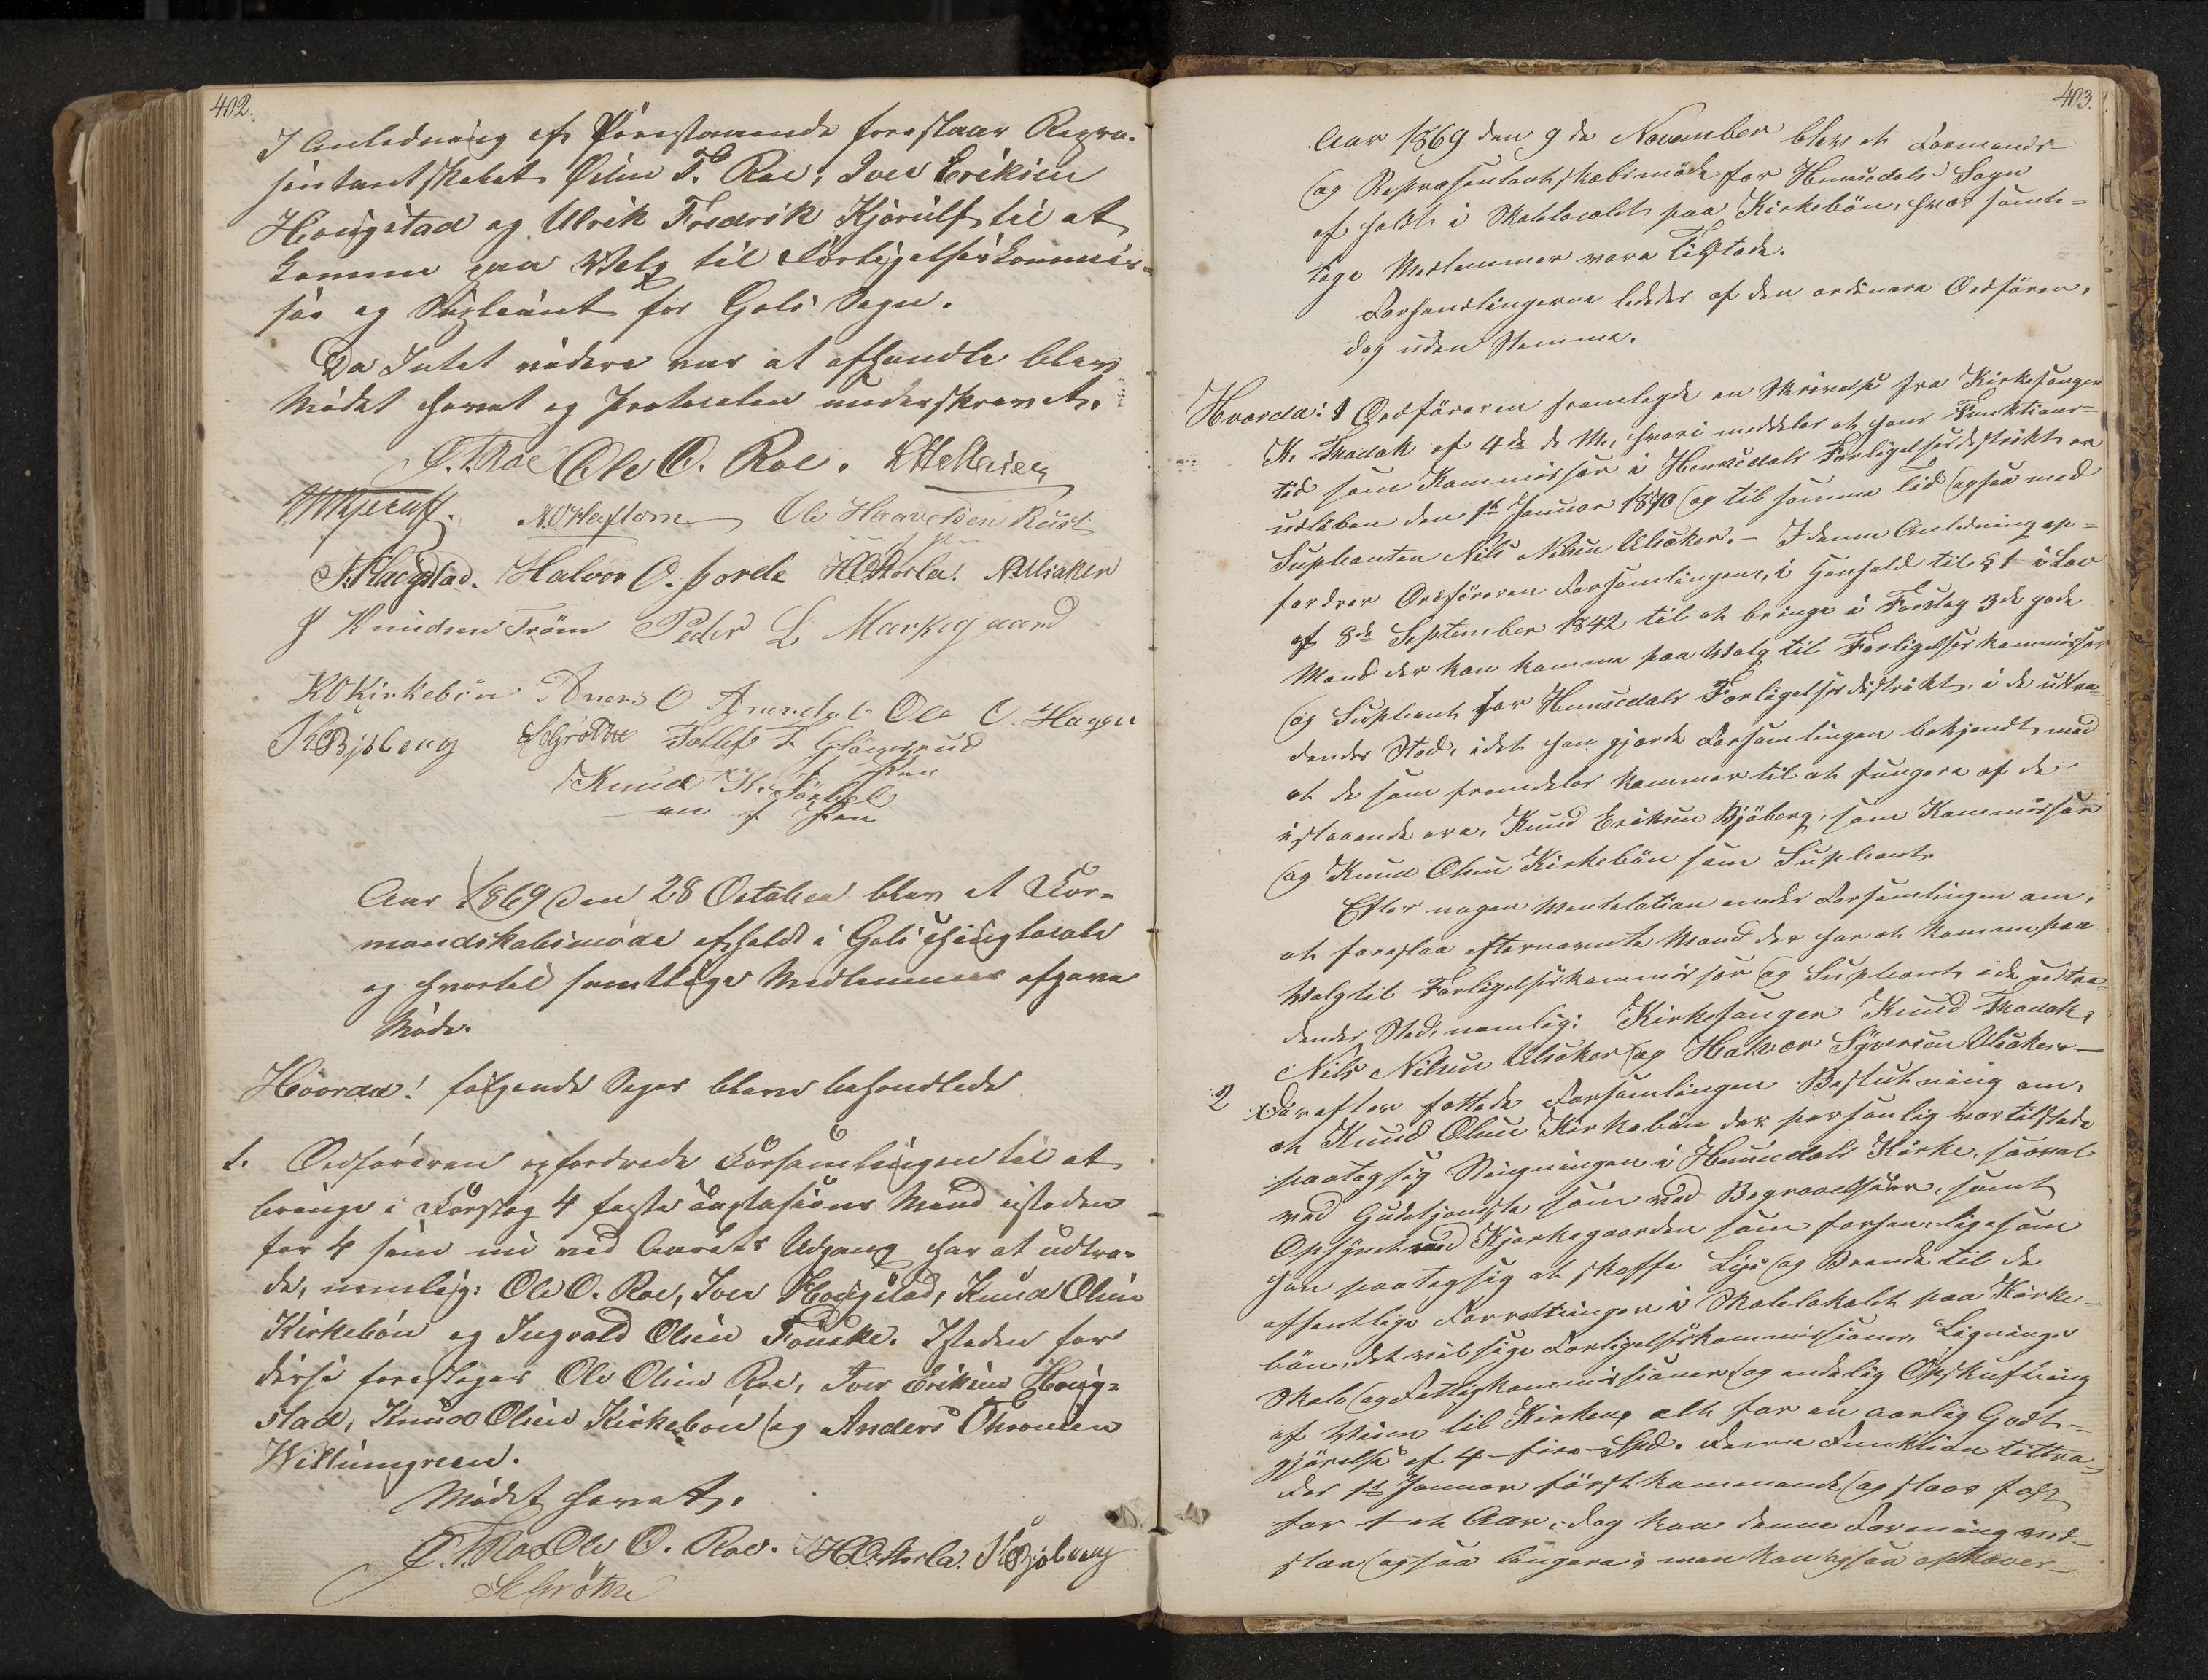 402.
I Anledning af Förestaaende foreslaar Repræ-
sentantskabet Ørlin T. Roe, Iver Eriksen
Hougstad og Ulrik Fredrik Kjerulf til at
komme paa Walg til Forligelseskommis-
sær og Supleant for Gols Sogn.
Da Intet videre var at afhandle blev
Mödet hævet og Protocolen underskrevet.
Ole O. Roe.
Ole Haavelsen Rust
Halvor O. Torde H.O. Storla. N. Ulsaker
Knudsen Tröm Peder L. Markegaard
K O Kirkebön Ole O. Hagen
Gröthe
Knud K.
Aar 1869 den 28 October blev et For-
mandskabsmöde afholdt i Gols Thinglocale
og hvortil samtlige Medlemmer afgave
Möde.
Hvorda! følgende Sager bleve behandlede
1. Ordføreren opfordrede Forsamlingen til at
bringe i Forslag 4 faste Mænd isteden
for 4 som nu ved Aarets Udgang har at udtræ-
de, nemlig: Ole O. Roe, Iver Hougstad, Knud Olsen
Kirkebön og Ingvald Olsen Fouske. Isteden for
disse foreslages Ole Olsen Roe, Iver Eriksen Houg-
stad, Knud Olsen Kirkebön og Anders Thronsen
Willumgreen.
Mödet hævet.
Ole O. Roe. H.O. Storla.
Gröthe
403.
Aar 1869 den 9de November blev et Formands-
og Repræsentantskabsmöde for Hemsedals Sogn
afholdt i Skolelocalet paa Kirkebön, hvor samt-
lige Medlemmer vare tilstede.
Forhandlingerne lededes af den ordinære Ordförer,
dog uden Stemme.
Hvorda: 1 Ordföreren fremlagde en Skrivelse fra Kirkesanger
K. Thodok af 4de d. M., hvori meddeles at hans Funktions-
tid som Kommissær i Hemsedals Forligelsesdistrikt er
udlöben den 1te Januar 1870 og til samme Tid ogsaa med
Supleanten Nils Nilsen Ulsaker. – I denne Anledning op-
fordrer Ordföreren Forsamlingen, i Henhold til § 1 i Lov
af 8de September 1842 til at bringe i Forslag 3de gode
Mænd der kan komme paa Walg til Forligelseskommissær
og Supleant for Hemsedals Forligelsesdistrikt, i de udtræ-
dendes Sted, idet han gjorde Forsamlingen bekjendt med
at de som fremdeles kommer til at fungere af de
istaaende ere, Knud Eriksen Bjöberg, som Kommissær
og Knud Olsen Kirkebön som Supleant.
Efter nogen Wentelation enedes Forsamlingen om,
at foreslaa efternævnte Mænd der har at komme paa
Walg til Forligelseskommissær og Supleant i de udtræ-
dendes Sted, nemlig: Kirkesanger Knud Thodok,
Nils Nilsen Ulsaker og Halvor Syversen Ulsaker. –
2 Derefter fattede Forsamlingen Beslutning om,
at Knud Olsen Kirkebön der personlig var tilstede
paatog sig Ringningen i Hemsedals Kirke, saavel
ved Gudstjeneste som ved Begravelser, samt
Opsynet med Kjerkegaarden som forhen, ligesom
han paatog sig at skaffe Lys og Brænde til de
offentlige Forretninger i Skolelokalet paa Kirke-
bön, det vil sige Forligelseskommissioner, Lignings
Skole og Fattigkommissioner og endelig Opskuffning
af Veien til Kirken, alt for en aarlig Godt-
gjörelse af 4 – fire – Spd. Denne Funktion tiltræ-
des 1te Januar förstkommende og staar fast
for 1 et Aar, dog kan denne Forening ved-
staa ogsaa længere; man kan ogsaa